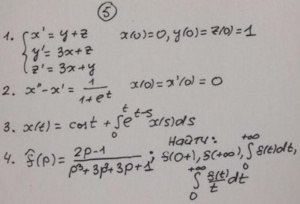 5
1. { x' = y + z   x(0) = 0, y(0) = z(0) = 1
y' = 3x + z
z' = 3x + y
2. x'' - x' = 1/(1 + e^t)   x(0) = x'(0) = 0
3. x(t) = cos t + ∫_0^t e^{t-s} x(s) ds
4. f̂(p) = (2p - 1)/(p³ + 3p² + 3p + 1); Найти: f(0+), f(+∞), ∫_0^{+∞} f(t)dt,
∫_0^{+∞} f(t)/t dt